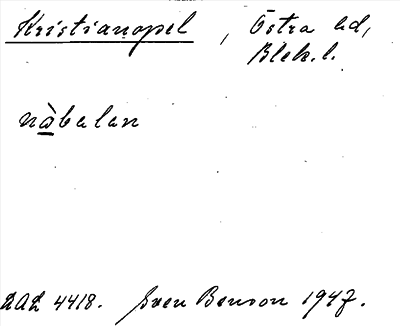 Kristianopel, Östra hd,
Blek. l.
nàbalan
DAL 4418. Sven Benson 1947.